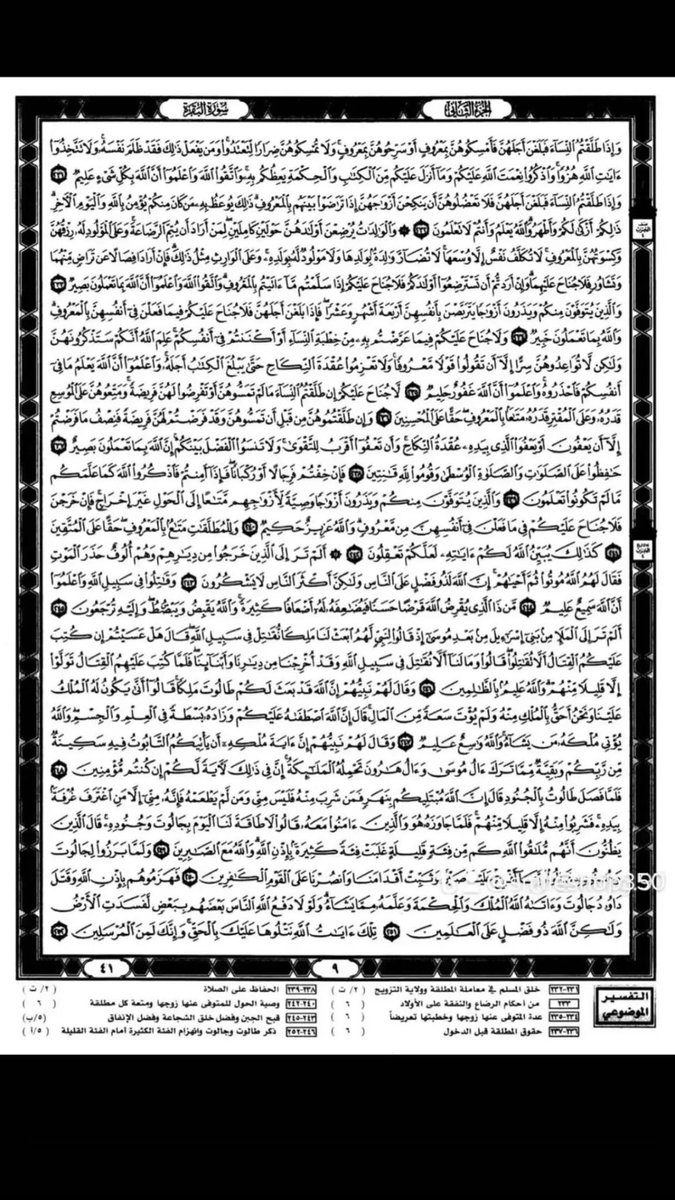 الجزء الثاني
سورة البقرة
وَإِذَا طَلَّقْتُمُ النِّسَاءَ فَبَلَغْنَ أَجَلَهُنَّ فَأَمْسِكُوهُنَّ بِمَعْرُوفٍ أَوْ سَرِّحُوهُنَّ بِمَعْرُوفٍ وَلَا تُمْسِكُوهُنَّ ضِرَارًا لِّتَعْتَدُوا وَمَن يَفْعَلْ ذَٰلِكَ فَقَدْ ظَلَمَ نَفْسَهُ وَلَا تَتَّخِذُوا
آيَاتِ اللَّهِ هُزُوًا وَاذْكُرُوا نِعْمَتَ اللَّهِ عَلَيْكُمْ وَمَا أَنزَلَ عَلَيْكُم مِّنَ الْكِتَابِ وَالْحِكْمَةِ يَعِظُكُم بِهِ وَاتَّقُوا اللَّهَ وَاعْلَمُوا أَنَّ اللَّهَ بِكُلِّ شَيْءٍ عَلِيمٌ ٢٣١
وَإِذَا طَلَّقْتُمُ النِّسَاءَ فَبَلَغْنَ أَجَلَهُنَّ فَلَا تَعْضُلُوهُنَّ أَن يَنكِحْنَ أَزْوَاجَهُنَّ إِذَا تَرَاضَوْا بَيْنَهُم بِالْمَعْرُوفِ ذَٰلِكَ يُوعَظُ بِهِ مَن كَانَ مِنكُمْ يُؤْمِنُ بِاللَّهِ وَالْيَوْمِ الْآخِرِ
ذَٰلِكُمْ أَزْكَىٰ لَكُمْ وَأَطْهَرُ وَاللَّهُ يَعْلَمُ وَأَنتُمْ لَا تَعْلَمُونَ ٢٣٢ ۞ وَالْوَالِدَاتُ يُرْضِعْنَ أَوْلَادَهُنَّ حَوْلَيْنِ كَامِلَيْنِ لِمَنْ أَرَادَ أَن يُتِمَّ الرَّضَاعَةَ وَعَلَى الْمَوْلُودِ لَهُ رِزْقُهُنَّ
وَكِسْوَتُهُنَّ بِالْمَعْرُوفِ لَا تُكَلَّفُ نَفْسٌ إِلَّا وُسْعَهَا لَا تُضَارَّ وَالِدَةٌ بِوَلَدِهَا وَلَا مَوْلُودٌ لَّهُ بِوَلَدِهِ وَعَلَى الْوَارِثِ مِثْلُ ذَٰلِكَ فَإِنْ أَرَادَا فِصَالًا عَن تَرَاضٍ مِّنْهُمَا
وَتَشَاوُرٍ فَلَا جُنَاحَ عَلَيْهِمَا وَإِنْ أَرَدتُّمْ أَن تَسْتَرْضِعُوا أَوْلَادَكُمْ فَلَا جُنَاحَ عَلَيْكُمْ إِذَا سَلَّمْتُم مَّا آتَيْتُم بِالْمَعْرُوفِ وَاتَّقُوا اللَّهَ وَاعْلَمُوا أَنَّ اللَّهَ بِمَا تَعْمَلُونَ بَصِيرٌ ٢٣٣
وَالَّذِينَ يُتَوَفَّوْنَ مِنكُمْ وَيَذَرُونَ أَزْوَاجًا يَتَرَبَّصْنَ بِأَنفُسِهِنَّ أَرْبَعَةَ أَشْهُرٍ وَعَشْرًا فَإِذَا بَلَغْنَ أَجَلَهُنَّ فَلَا جُنَاحَ عَلَيْكُمْ فِيمَا فَعَلْنَ فِي أَنفُسِهِنَّ بِالْمَعْرُوفِ
وَاللَّهُ بِمَا تَعْمَلُونَ خَبِيرٌ ٢٣٤ وَلَا جُنَاحَ عَلَيْكُمْ فِيمَا عَرَّضْتُم بِهِ مِنْ خِطْبَةِ النِّسَاءِ أَوْ أَكْنَنتُمْ فِي أَنفُسِكُمْ عَلِمَ اللَّهُ أَنَّكُمْ سَتَذْكُرُونَهُنَّ
وَلَٰكِن لَّا تُوَاعِدُوهُنَّ سِرًّا إِلَّا أَن تَقُولُوا قَوْلًا مَّعْرُوفًا وَلَا تَعْزِمُوا عُقْدَةَ النِّكَاحِ حَتَّىٰ يَبْلُغَ الْكِتَابُ أَجَلَهُ وَاعْلَمُوا أَنَّ اللَّهَ يَعْلَمُ مَا فِي
أَنفُسِكُمْ فَاحْذَرُوهُ وَاعْلَمُوا أَنَّ اللَّهَ غَفُورٌ حَلِيمٌ ٢٣٥ لَّا جُنَاحَ عَلَيْكُمْ إِن طَلَّقْتُمُ النِّسَاءَ مَا لَمْ تَمَسُّوهُنَّ أَوْ تَفْرِضُوا لَهُنَّ فَرِيضَةً وَمَتِّعُوهُنَّ عَلَى الْمُوسِعِ
قَدَرُهُ وَعَلَى الْمُقْتِرِ قَدَرُهُ مَتَاعًا بِالْمَعْرُوفِ حَقًّا عَلَى الْمُحْسِنِينَ ٢٣٦ وَإِن طَلَّقْتُمُوهُنَّ مِن قَبْلِ أَن تَمَسُّوهُنَّ وَقَدْ فَرَضْتُمْ لَهُنَّ فَرِيضَةً فَنِصْفُ مَا فَرَضْتُمْ
إِلَّا أَن يَعْفُونَ أَوْ يَعْفُوَا الَّذِي بِيَدِهِ عُقْدَةُ النِّكَاحِ وَأَن تَعْفُوا أَقْرَبُ لِلتَّقْوَىٰ وَلَا تَنسَوُا الْفَضْلَ بَيْنَكُمْ إِنَّ اللَّهَ بِمَا تَعْمَلُونَ بَصِيرٌ ٢٣٧
حَافِظُوا عَلَى الصَّلَوَاتِ وَالصَّلَاةِ الْوُسْطَىٰ وَقُومُوا لِلَّهِ قَانِتِينَ ٢٣٨ فَإِنْ خِفْتُمْ فَرِجَالًا أَوْ رُكْبَانًا فَإِذَا أَمِنتُمْ فَاذْكُرُوا اللَّهَ كَمَا عَلَّمَكُم
مَّا لَمْ تَكُونُوا تَعْلَمُونَ ٢٣٩ وَالَّذِينَ يُتَوَفَّوْنَ مِنكُمْ وَيَذَرُونَ أَزْوَاجًا وَصِيَّةً لِّأَزْوَاجِهِم مَّتَاعًا إِلَى الْحَوْلِ غَيْرَ إِخْرَاجٍ فَإِنْ خَرَجْنَ
فَلَا جُنَاحَ عَلَيْكُمْ فِي مَا فَعَلْنَ فِي أَنفُسِهِنَّ مِن مَّعْرُوفٍ وَاللَّهُ عَزِيزٌ حَكِيمٌ ٢٤٠ وَلِلْمُطَلَّقَاتِ مَتَاعٌ بِالْمَعْرُوفِ حَقًّا عَلَى الْمُتَّقِينَ
٢٤١ كَذَٰلِكَ يُبَيِّنُ اللَّهُ لَكُمْ آيَاتِهِ لَعَلَّكُمْ تَعْقِلُونَ ٢٤٢ ۞ أَلَمْ تَرَ إِلَى الَّذِينَ خَرَجُوا مِن دِيَارِهِمْ وَهُمْ أُلُوفٌ حَذَرَ الْمَوْتِ
فَقَالَ لَهُمُ اللَّهُ مُوتُوا ثُمَّ أَحْيَاهُمْ إِنَّ اللَّهَ لَذُو فَضْلٍ عَلَى النَّاسِ وَلَٰكِنَّ أَكْثَرَ النَّاسِ لَا يَشْكُرُونَ ٢٤٣ وَقَاتِلُوا فِي سَبِيلِ اللَّهِ وَاعْلَمُوا
أَنَّ اللَّهَ سَمِيعٌ عَلِيمٌ ٢٤٤ مَّن ذَا الَّذِي يُقْرِضُ اللَّهَ قَرْضًا حَسَنًا فَيُضَاعِفَهُ لَهُ أَضْعَافًا كَثِيرَةً وَاللَّهُ يَقْبِضُ وَيَبْسُطُ وَإِلَيْهِ تُرْجَعُونَ ٢٤٥
أَلَمْ تَرَ إِلَى الْمَلَإِ مِن بَنِي إِسْرَائِيلَ مِن بَعْدِ مُوسَىٰ إِذْ قَالُوا لِنَبِيٍّ لَّهُمُ ابْعَثْ لَنَا مَلِكًا نُّقَاتِلْ فِي سَبِيلِ اللَّهِ قَالَ هَلْ عَسَيْتُمْ إِن كُتِبَ
عَلَيْكُمُ الْقِتَالُ أَلَّا تُقَاتِلُوا قَالُوا وَمَا لَنَا أَلَّا نُقَاتِلَ فِي سَبِيلِ اللَّهِ وَقَدْ أُخْرِجْنَا مِن دِيَارِنَا وَأَبْنَائِنَا فَلَمَّا كُتِبَ عَلَيْهِمُ الْقِتَالُ تَوَلَّوْا
إِلَّا قَلِيلًا مِّنْهُمْ وَاللَّهُ عَلِيمٌ بِالظَّالِمِينَ ٢٤٦ وَقَالَ لَهُمْ نَبِيُّهُمْ إِنَّ اللَّهَ قَدْ بَعَثَ لَكُمْ طَالُوتَ مَلِكًا قَالُوا أَنَّىٰ يَكُونُ لَهُ الْمُلْكُ
عَلَيْنَا وَنَحْنُ أَحَقُّ بِالْمُلْكِ مِنْهُ وَلَمْ يُؤْتَ سَعَةً مِّنَ الْمَالِ قَالَ إِنَّ اللَّهَ اصْطَفَاهُ عَلَيْكُمْ وَزَادَهُ بَسْطَةً فِي الْعِلْمِ وَالْجِسْمِ وَاللَّهُ
يُؤْتِي مُلْكَهُ مَن يَشَاءُ وَاللَّهُ وَاسِعٌ عَلِيمٌ ٢٤٧ وَقَالَ لَهُمْ نَبِيُّهُمْ إِنَّ آيَةَ مُلْكِهِ أَن يَأْتِيَكُمُ التَّابُوتُ فِيهِ سَكِينَةٌ
مِّن رَّبِّكُمْ وَبَقِيَّةٌ مِّمَّا تَرَكَ آلُ مُوسَىٰ وَآلُ هَارُونَ تَحْمِلُهُ الْمَلَائِكَةُ إِنَّ فِي ذَٰلِكَ لَآيَةً لَّكُمْ إِن كُنتُم مُّؤْمِنِينَ ٢٤٨
فَلَمَّا فَصَلَ طَالُوتُ بِالْجُنُودِ قَالَ إِنَّ اللَّهَ مُبْتَلِيكُم بِنَهَرٍ فَمَن شَرِبَ مِنْهُ فَلَيْسَ مِنِّي وَمَن لَّمْ يَطْعَمْهُ فَإِنَّهُ مِنِّي إِلَّا مَنِ اغْتَرَفَ غُرْفَةً
بِيَدِهِ فَشَرِبُوا مِنْهُ إِلَّا قَلِيلًا مِّنْهُمْ فَلَمَّا جَاوَزَهُ هُوَ وَالَّذِينَ آمَنُوا مَعَهُ قَالُوا لَا طَاقَةَ لَنَا الْيَوْمَ بِجَالُوتَ وَجُنُودِهِ قَالَ الَّذِينَ
يَظُنُّونَ أَنَّهُم مُّلَاقُو اللَّهِ كَم مِّن فِئَةٍ قَلِيلَةٍ غَلَبَتْ فِئَةً كَثِيرَةً بِإِذْنِ اللَّهِ وَاللَّهُ مَعَ الصَّابِرِينَ ٢٤٩ وَلَمَّا بَرَزُوا لِجَالُوتَ
وَجُنُودِهِ قَالُوا رَبَّنَا أَفْرِغْ عَلَيْنَا صَبْرًا وَثَبِّتْ أَقْدَامَنَا وَانصُرْنَا عَلَى الْقَوْمِ الْكَافِرِينَ ٢٥٠ فَهَزَمُوهُم بِإِذْنِ اللَّهِ وَقَتَلَ
دَاوُودُ جَالُوتَ وَآتَاهُ اللَّهُ الْمُلْكَ وَالْحِكْمَةَ وَعَلَّمَهُ مِمَّا يَشَاءُ وَلَوْلَا دَفْعُ اللَّهِ النَّاسَ بَعْضَهُم بِبَعْضٍ لَّفَسَدَتِ الْأَرْضُ
وَلَٰكِنَّ اللَّهَ ذُو فَضْلٍ عَلَى الْعَالَمِينَ ٢٥١ تِلْكَ آيَاتُ اللَّهِ نَتْلُوهَا عَلَيْكَ بِالْحَقِّ وَإِنَّكَ لَمِنَ الْمُرْسَلِينَ ٢٥٢
٩
٤١
التفسير الموضوعي
٢٣١-٢٣٢ خلق المسلم في معاملة المطلقة وولاية التزويج ( ٢/ ت )
٢٣٣ من أحكام الرضاع والنفقة على الأولاد ( ٦ )
٢٣٤-٢٣٥ عدة المتوفى عنها زوجها وخطبتها تعريضاً ( ٦ )
٢٣٦-٢٣٧ حقوق المطلقة قبل الدخول ( ٦ )
٢٣٨-٢٣٩ الحفاظ على الصلاة ( ٢/ ت )
٢٤٠-٢٤٢ وصية الحول للمتوفى عنها زوجها ومتعة كل مطلقة ( ٦ )
٢٤٣-٢٤٥ قبح الجبن وفضل خلق الشجاعة وفضل الإنفاق (٥/ب)
٢٤٦-٢٥٢ ذكر طالوت وجالوت وانهزام الفئة الكثيرة أمام الفئة القليلة ( ٥/أ )